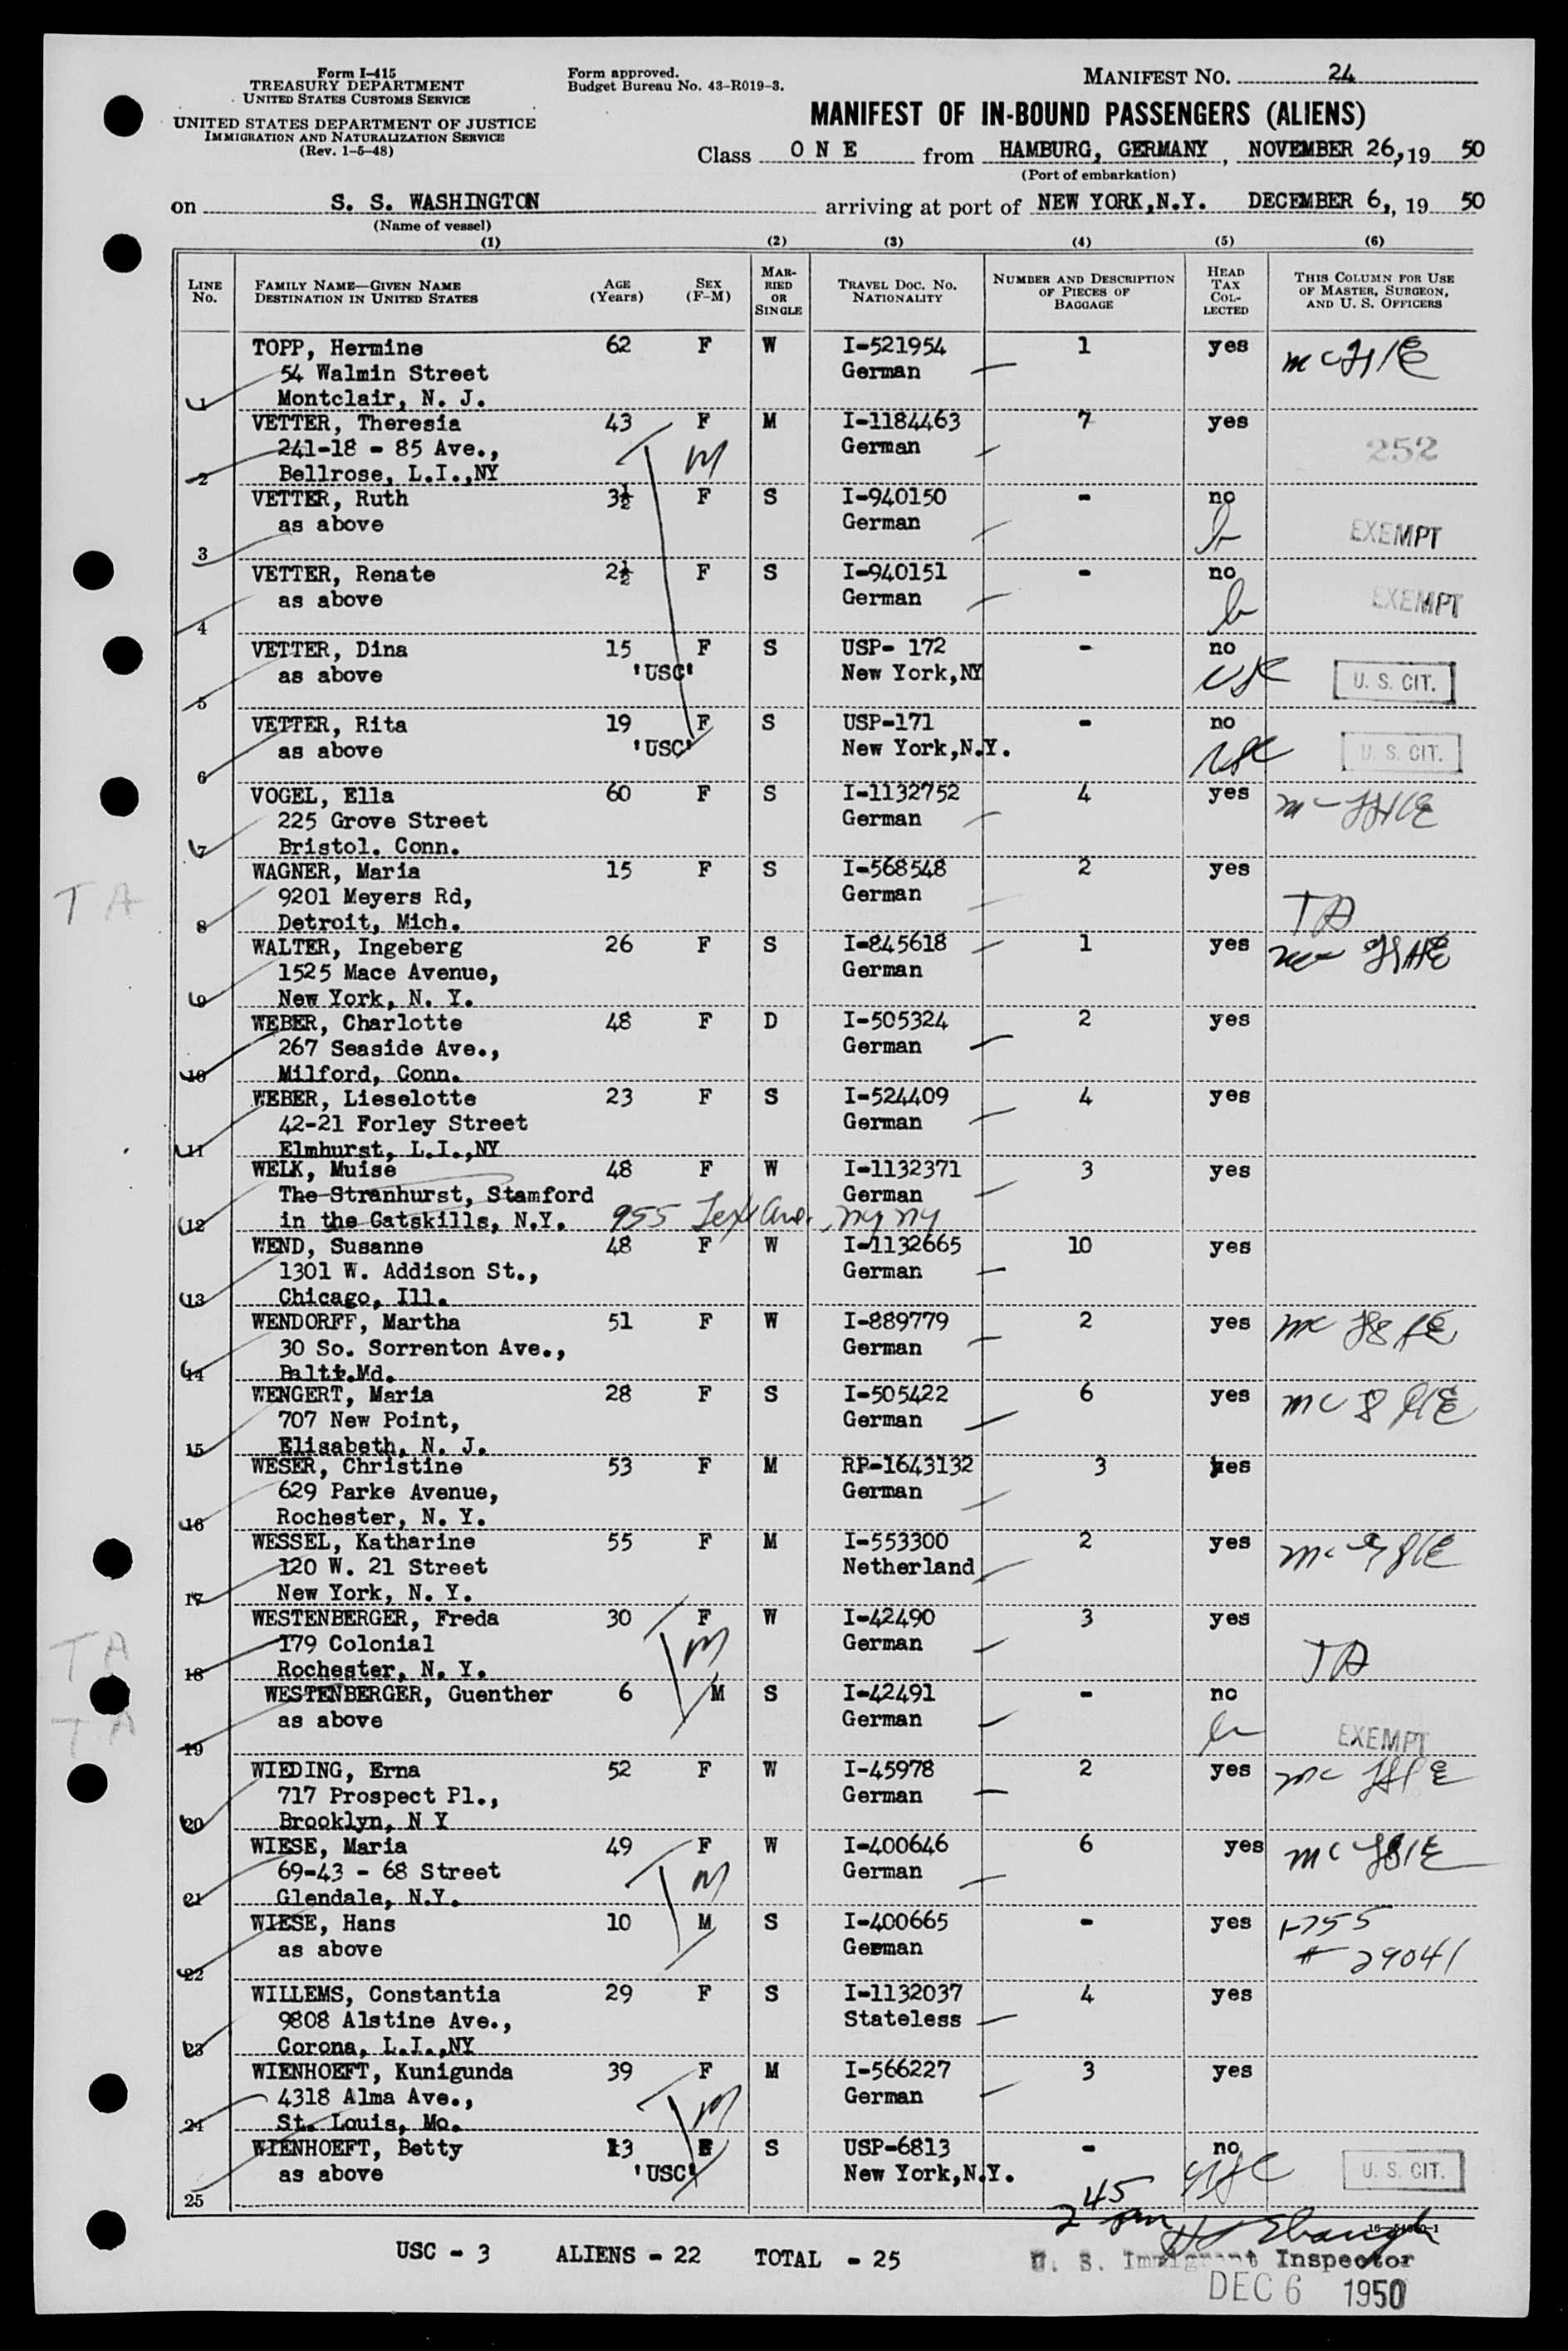 Form I-415
TREASURY DEPARTMENT
UNITED STATES CUSTOMS SERVICE
UNITED STATES DEPARTMENT OF JUSTICE
IMMIGRATION AND NATURALIZATION SERVICE
(Rev. 1-5-48)
Form approved.
Budget Bureau No. 43-R019-3.
MANIFEST NO. 24
MANIFEST OF IN-BOUND PASSENGERS (ALIENS)
Class O N E from HAMBURG, GERMANY, NOVEMBER 26, 19 50
(Port of embarkation)
on S. S. WASHINGTON arriving at port of NEW YORK, N.Y. DECEMBER 6,, 19 50
(Name of vessel)
(1) (2) (3) (4) (5) (6)
LINE No. FAMILY NAME—GIVEN NAME DESTINATION IN UNITED STATES AGE (Years) SEX (F-M) MARRIED OR SINGLE TRAVEL DOC. NO. NATIONALITY NUMBER AND DESCRIPTION OF PIECES OF BAGGAGE HEAD TAX COLLECTED THIS COLUMN FOR USE OF MASTER, SURGEON, AND U. S. OFFICERS
TOPP, Hermine 62 F W I-521954 1 yes
54 Walmin Street German
1 Montclair, N. J.
VETTER, Theresia 43 F M I-1184463 7 yes
241-18 - 85 Ave., M German 252
2 Bellrose, L.I.,NY
VETTER, Ruth 3½ F S I-940150 - no
as above German EXEMPT
3
VETTER, Renate 2½ F S I-940151 - no
as above German EXEMPT
4
VETTER, Dina 15 F S USP- 172 - no
as above 'USC' New York,NY U. S. CIT.
5
VETTER, Rita 19 F S USP-171 - no
as above 'USC' New York,N.Y. U. S. CIT.
6
VOGEL, Ella 60 F S I-1132752 4 yes
225 Grove Street German
7 Bristol. Conn.
WAGNER, Maria 15 F S I-568548 2 yes
TA 9201 Meyers Rd, German TA
8 Detroit, Mich.
WALTER, Ingeberg 26 F S I-845618 1 yes
1525 Mace Avenue, German
9 New York, N. Y.
WEBER, Charlotte 48 F D I-505324 2 yes
267 Seaside Ave., German
10 Milford, Conn.
WEBER, Lieselotte 23 F S I-524409 4 yes
42-21 Forley Street German
11 Elmhurst, L.I.,NY
WELK, Muise 48 F W I-1132371 3 yes
The Stranhurst, Stamford German
12 in the Gatskills, N.Y. 955 Lex Ave., NY NY
WEND, Susanne 48 F W I-1132665 10 yes
1301 W. Addison St., German
13 Chicago, Ill.
WENDORFF, Martha 51 F W I-889779 2 yes
30 So. Sorrenton Ave., German
14 Balti.Md.
WENGERT, Maria 28 F S I-505422 6 yes
707 New Point, German
15 Elisabeth, N. J.
WESER, Christine 53 F M RP-1643132 3 yes
629 Parke Avenue, German
16 Rochester, N. Y.
WESSEL, Katharine 55 F M I-553300 2 yes
120 W. 21 Street Netherland
17 New York, N. Y.
WESTENBERGER, Freda 30 F W I-42490 3 yes
TA 179 Colonial M German TA
18 Rochester, N. Y.
WESTENBERGER, Guenther 6 M S I-42491 - no
TA as above German EXEMPT
19
WIEDING, Erna 52 F W I-45978 2 yes
717 Prospect Pl., German
20 Brooklyn, N Y
WIESE, Maria 49 F W I-400646 6 yes
69-43 - 68 Street M German
21 Glendale, N.Y.
WIESE, Hans 10 M S I-400665 - yes 1-755
as above German # 29041
22
WILLEMS, Constantia 29 F S I-1132037 4 yes
9808 Alstine Ave., Stateless
23 Corona, L.I.,NY
WIENHOEFT, Kunigunda 39 F M I-566227 3 yes
4318 Alma Ave., M German
24 St. Louis, Mo.
WIENHOEFT, Betty 13 F S USP-6813 - no
as above 'USC' New York,N.Y. U. S. CIT.
25
2 45 pm
USC - 3 ALIENS - 22 TOTAL - 25 U. S. Immigrant Inspector
DEC 6 1950